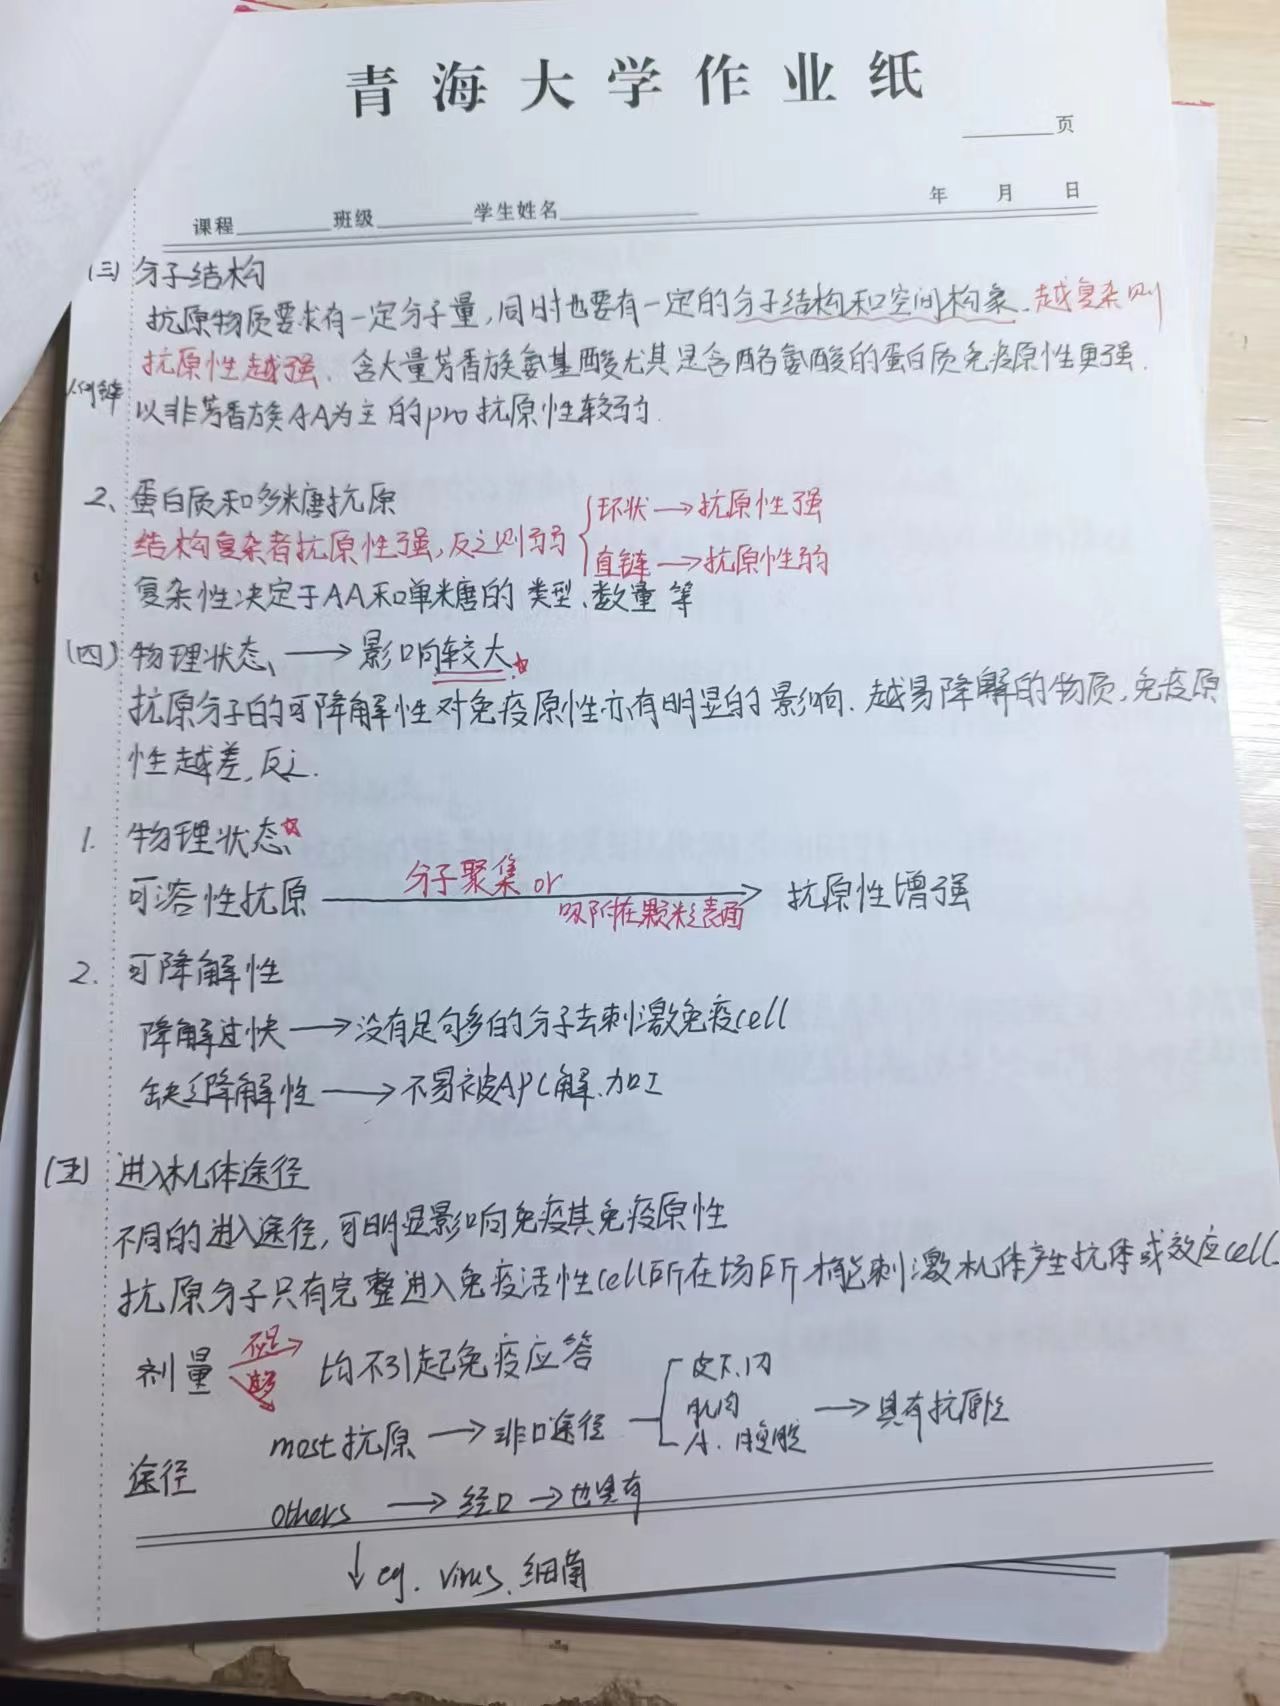 青海大学作业纸
页
年 月 日
课程 班级 学生姓名
(三) 分子结构
抗原物质要求有一定分子量,同时也要有一定的分子结构和空间构象.越复杂则
抗原性越强. 含大量芳香族氨基酸尤其是含酪氨酸的蛋白质免疫原性更强.
以非芳香族AA为主的pro抗原性较弱.
2、蛋白质和多糖抗原
结构复杂者抗原性强,反之则弱 环状→抗原性强
直链→抗原性弱
复杂性决定于AA和单糖的类型、数量等
(四) 物理状态、→影响较大.☆
抗原分子的可降解性对免疫原性亦有明显的影响. 越易降解的物质,免疫原
性越差,反之.
1. 物理状态☆
可溶性抗原 分子聚集or 吸附在颗粒表面→ 抗原性增强
2. 可降解性
降解过快→没有足够多的分子去刺激免疫cell
缺乏降解性→不易被APC解.加工
(五) 进入机体途径
不同的进入途径,可明显影响免疫其免疫原性
抗原分子只有完整进入免疫活性cell所在场所才能刺激机体产生抗体或效应cell.
剂量 均不引起免疫应答
皮下.内
most抗原→非口途径 肌肉 →具有抗原性
腹腔
途径
others→经口→也具有
↓eg. virus、细菌